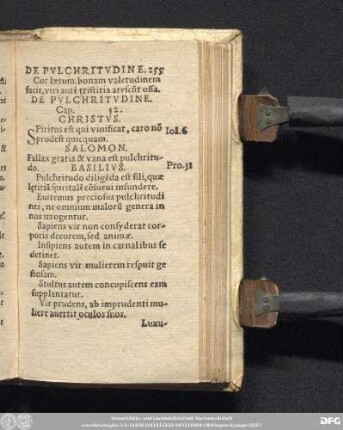 DE PVLCHRITVDINE. 255
Cor lætum, bonam valetudinem
facit, viri autē tristitia arescūt ossa.
DE PVLCHRITVDINE.
Cap. 52.
CHRISTVS.
SPiritus est qui viuificat, caro nō Ioā.6
prodest quicquam.
SALOMON.
Fallax gratia & vana est pulchritu- Pro.31
do. BASILIVS.
Pulchritudo diligēda est fili, quæ
lętitiā spiritalē cōsueui infundere.
nes, ne omnium malorū genera in
nos irrogentur.
Sapiens vir non consyderat cor-
poris decorem, sed animæ.
Insipiens autem in carnalibus se
detinet.
Sapiens vir mulierem respuit ge
stosam.
Stultus autem concupiscens eam
supplantatur.
Vir prudens, ab imprudenti mu-
liere auertit oculos suos.
Luxu-